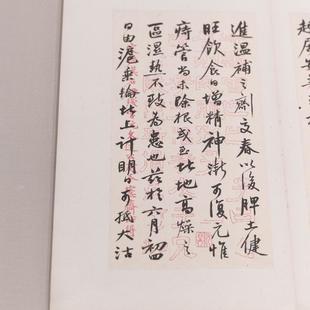 進温補之劑交春以後脾土健
旺飲食日增精神漸可復元惟
痔管尚未除根或至此地高燥之
區濕熱不致為患也茲於六月初四
日由滬乘輪北上計明日可抵大沽